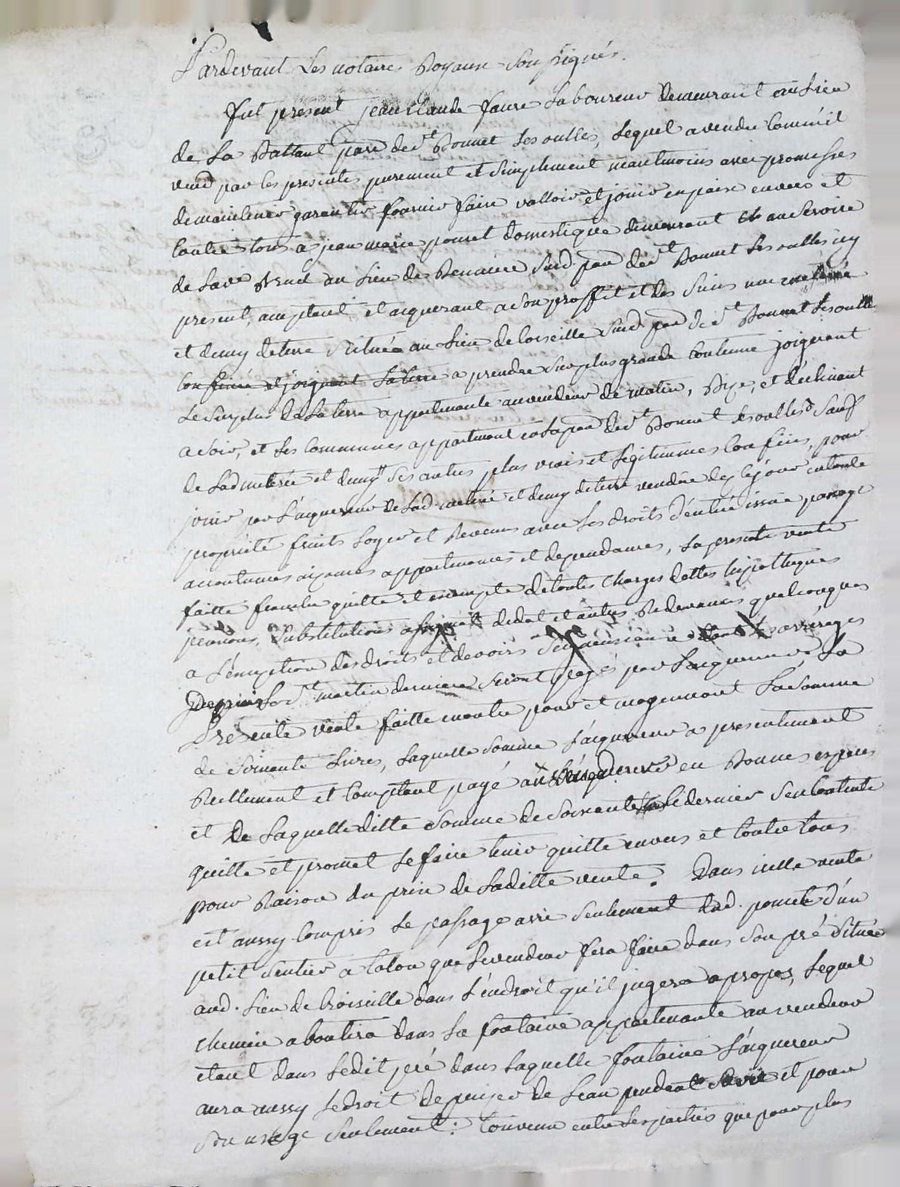 Pardevant Les notaires Royaux Soussignés.
fut present jean Claude faure Laboureur demeurant au Lieu
de La Battant parr. de St. Bonnet Les oulles, Lequel a vendu Comme il
vend par les presentes purement et simplement neantmoins avec promesses
de maintenir garantir fournir faire valloir et jouir en paix envers et
Contre tous a jean marie domestique demeurant
de au Lieu de susd. parr. de St. Bonnet Les oulles icy
present, acceptant et acquerant a son proffit et des siens une
et demy de terre Située au Lieu de susd. parr. de St. Bonnet Les oulles
a prendre sur plus grande Contenue joignant
Le Surplus de La terre appartenante au vendeur de matin, Bize, et declinant
a soir, et Les communes appartenant a La parr. de St. Bonnet Les oulles Sauf
de Lad. et demy Ses autres plus vrais et Legitimes Confins, pour
jouir par L'acquereur de Lad. et demy de terre vendue dez Ce jour en toute
propriété fruits Loyer et Revenus avec Les droits d'entrée issue passage
accoutumés aisances appartenances et dependances, La presente vente
faitte franche quitte et exempte de toutes charges dettes hipotheques
pensions, Substitutions et autres Redevances quelconques
a L'exception des droits et devoirs arrérages
Depuis La St. martin derniere Seront payés par L'acquereur La
Presente vente faitte pour et moyennant La Somme
de Soixante Livres, Laquelle Somme L'acquereur a presentement
Reellement et Comptant payé au en Bonnes especes
et De Laquelle ditte Somme de Soixante Le dernier Sen Contente
quitte et promet Le faire tenir quitte envers et Contre tous
pour Raison du prix de Laditte vente. Dans icelle vente
est aussy Compris Le passage Seulement d'un
petit Sentier a talon que Le vendeur fera faire dans Son pré Situé
aud. Lieu de dans L'endroit qu'il jugera a propos, Lequel
chemin aboutira dans La fontaine appartenante au vendeur
etant dans Ledit pré dans Laquelle fontaine L'acquereur
aura aussy Le droit de puiser de L'eau et pour
Son usage Seulement: Convenu entre Les parties que pour plus